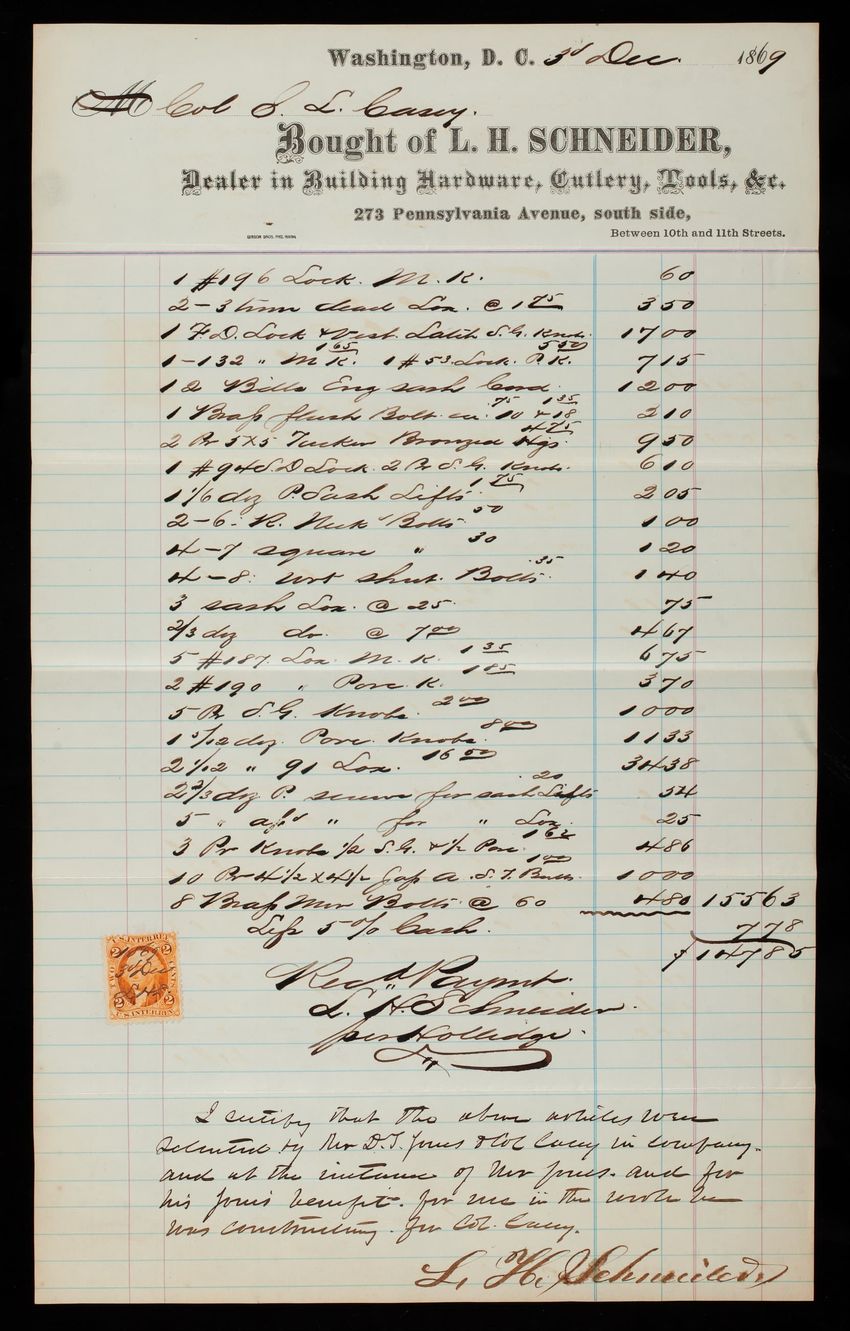 Washington, D. C. 3d Dec. 1869
M Col T. L. Casey.
Bought of L. H. SCHNEIDER,
Dealer in Building Hardware, Cutlery, Tools, &c.
273 Pennsylvania Avenue, south side,
GIBSON BROS. PRS. WASHN.
Between 10th and 11th Streets.
1 #196 Lock. M. K. 60
2-3 turn dead Lox. @ 1 75 3 50
1 F. D. Lock & Vest. Latch S. G. Knobs. 17 00
1-132 " M K. 1 65 1 #53 Lock. P. K. 5 50 7 15
12 Bdls Eng sash Cord. 12 00
1 Brass flush Bolt ea. 10 & 18 75 1 35 2 10
2 Pr 5x5 Tucker Bronzed Hgs. 4 75 9 50
1 #94 S. D Lock. 2 Pr S. G. Knobs. 6 10
1 1/6 doz P. Sash Lifts 1 75 2 05
2-6: R. Neck Bolts 50 1 00
4-7 square " 30 1 20
4-8: wrt shut. Bolts. 35 1 40
3 sash Lox. @ 25. 75
2/3 doz do. @ 7 00 4 67
5 #187. Lox. M. K. 1 35 6 75
2 #190 " Porc. K. 1 85 3 70
5 Pr S. G. Knobs. 2 00 10 00
1 5/12 doz. Porc. Knobs. 8 00 11 33
2 1/12 " 91 Lox. 16 50 34 38
2 2/3 doz P. screws for sash Lifts .20 54
5 " ass'd " for " Lox. 25
3 Pr Knobs 1/2 S. G. & 1/2 Porc. 1 62 4 86
10 Pr 4 1/2 x 4 1/2 Jap A. S. T. Butts. 1 00 10 00
8 Brass Mor Bolts @ 60 4 80 155 63
Less 5 % Cash. 7 78
$ 147 85
Rec'd Paymt.
L. H. Schneider
per Hollidge
U.S. INTER. REV.
2
3d Dec
L.H.S.
2 2
U.S. INTER. REV.
I certify that the above articles were
selected by Mr D. T. Jones & Col Casey in company.
and at the instance of Mr Jones. and for
his Jones benefit. for use in the work he
was constructing. for Col. Casey.
L. H. Schneider